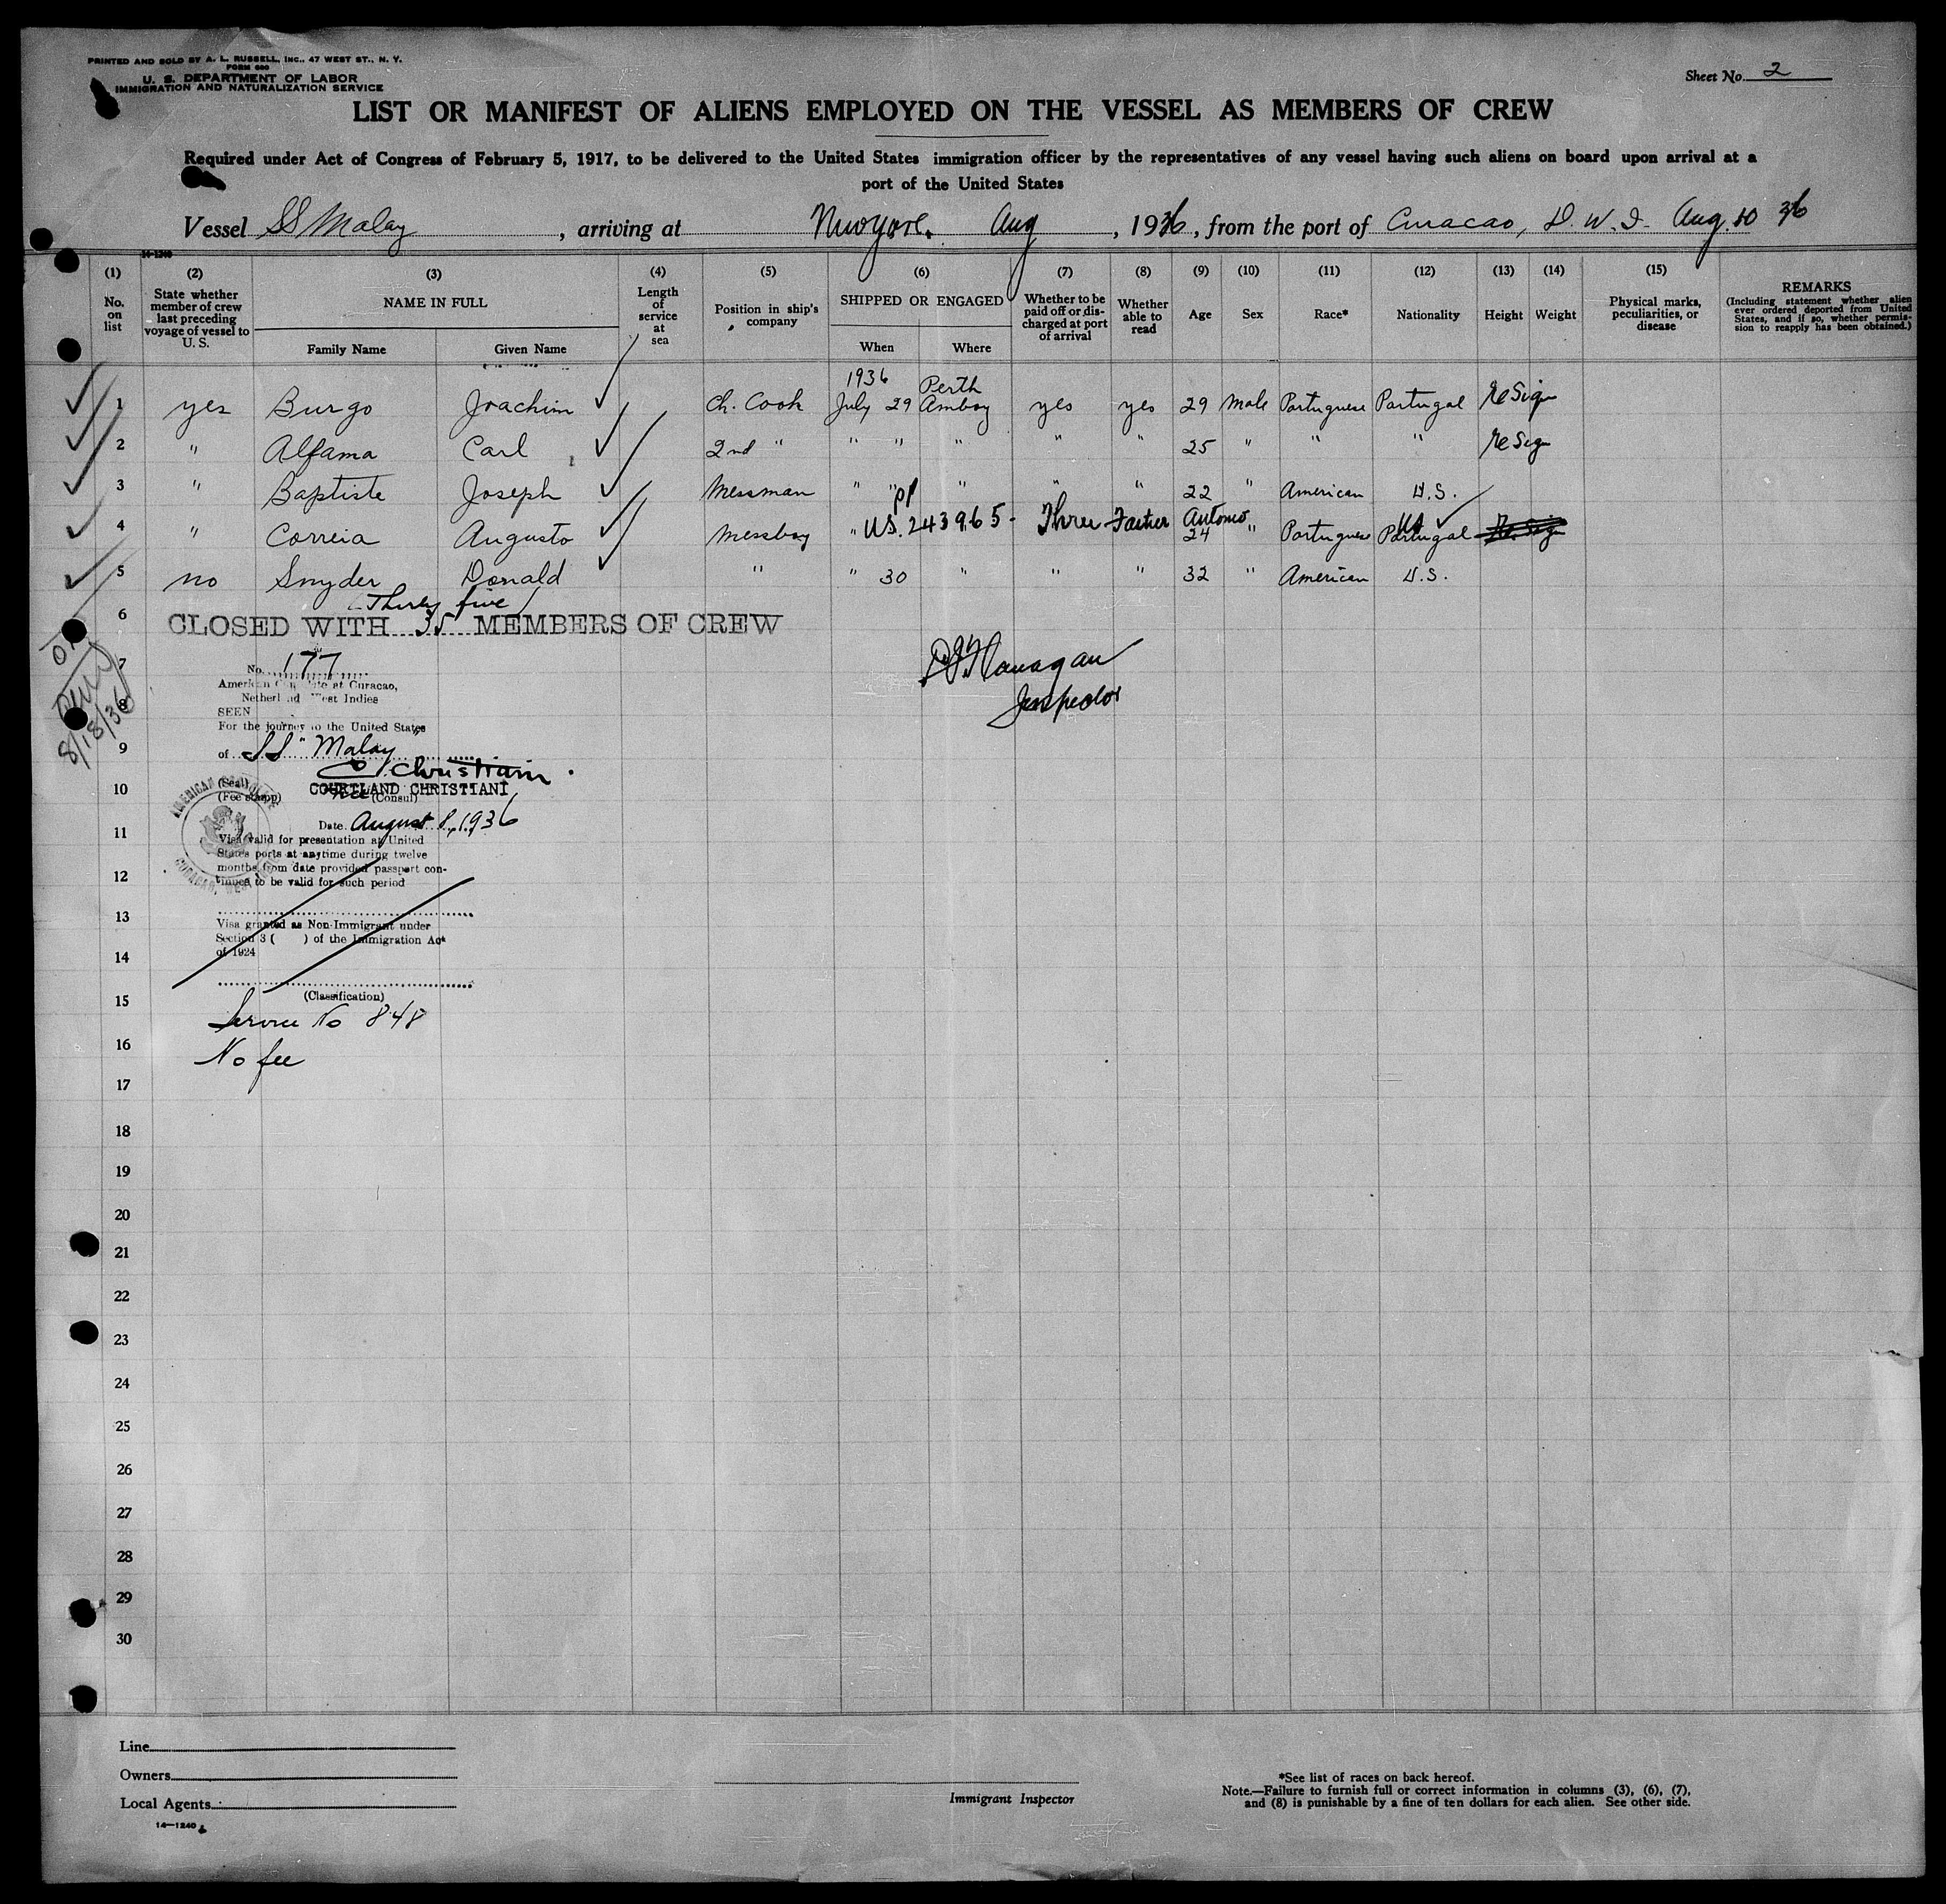 PRINTED AND SOLD BY A. L. RUSSELL, INC., 47 WEST ST., N. Y.
FORM 680
U. S. DEPARTMENT OF LABOR
IMMIGRATION AND NATURALIZATION SERVICE
Sheet No. 2
LIST OR MANIFEST OF ALIENS EMPLOYED ON THE VESSEL AS MEMBERS OF CREW
Required under Act of Congress of February 5, 1917, to be delivered to the United States immigration officer by the representatives of any vessel having such aliens on board upon arrival at a
port of the United States
Vessel SS Malay, arriving at New York. Aug, 1936, from the port of Curacao, D. W. I. Aug. 10 36
14-1240
(1) (2) (3) (4) (5) (6) (7) (8) (9) (10) (11) (12) (13) (14) (15)
No. on list
State whether member of crew last preceding voyage of vessel to U. S.
NAME IN FULL
Family Name Given Name
Length of service at sea
Position in ship's company
SHIPPED OR ENGAGED
When Where
Whether to be paid off or discharged at port of arrival
Whether able to read
Age Sex Race* Nationality Height Weight
Physical marks, peculiarities, or disease
REMARKS
(Including statement whether alien ever ordered deported from United States, and if so, whether permission to reapply has been obtained.)
1936 Perth
1 yes Burgo Joachim Ch. Cook July 29 Amboy yes yes 29 Male Portuguese Portugal ReSign
2 " Alfama Carl 2nd " " " " " " 25 " " " ReSign
3 " Baptiste Joseph Messman " " " " " 22 " American U.S.
pp
US. 243965- Thru Father Antonio US
4 " Correia Augusto Messboy " 24 " Portuguese Portugal ReSign
5 no Snyder Donald " " 30 " " " 32 " American U.S.
Thirty five
6 CLOSED WITH 35 MEMBERS OF CREW
OK
8/18/36
P. J. Flanagan
Inspector
7
No. 177
American Consulate at Curaçao,
Netherland West Indies
8
SEEN
For the journey to the United States
9
of SS "Malay"
C Christiani
10
(Seal)
COURTLAND CHRISTIANI
(Fee stamp) (Consul)
AMERICAN CONSULATE
CURACAO, WEST INDIES
11
Date August 8, 1936
Visa valid for presentation at United
States ports at anytime during twelve
months from date provided passport con-
12
tinues to be valid for such period
13
Visa granted as Non-Immigrant under
Section 3 ( ) of the Immigration Act
14
of 1924
15
(Classification)
Service No 848
16
No fee
17
18
19
20
21
22
23
24
25
26
27
28
29
30
Line
Owners
Local Agents
14—1240
Immigrant Inspector
*See list of races on back hereof.
Note.—Failure to furnish full or correct information in columns (3), (6), (7),
and (8) is punishable by a fine of ten dollars for each alien. See other side.